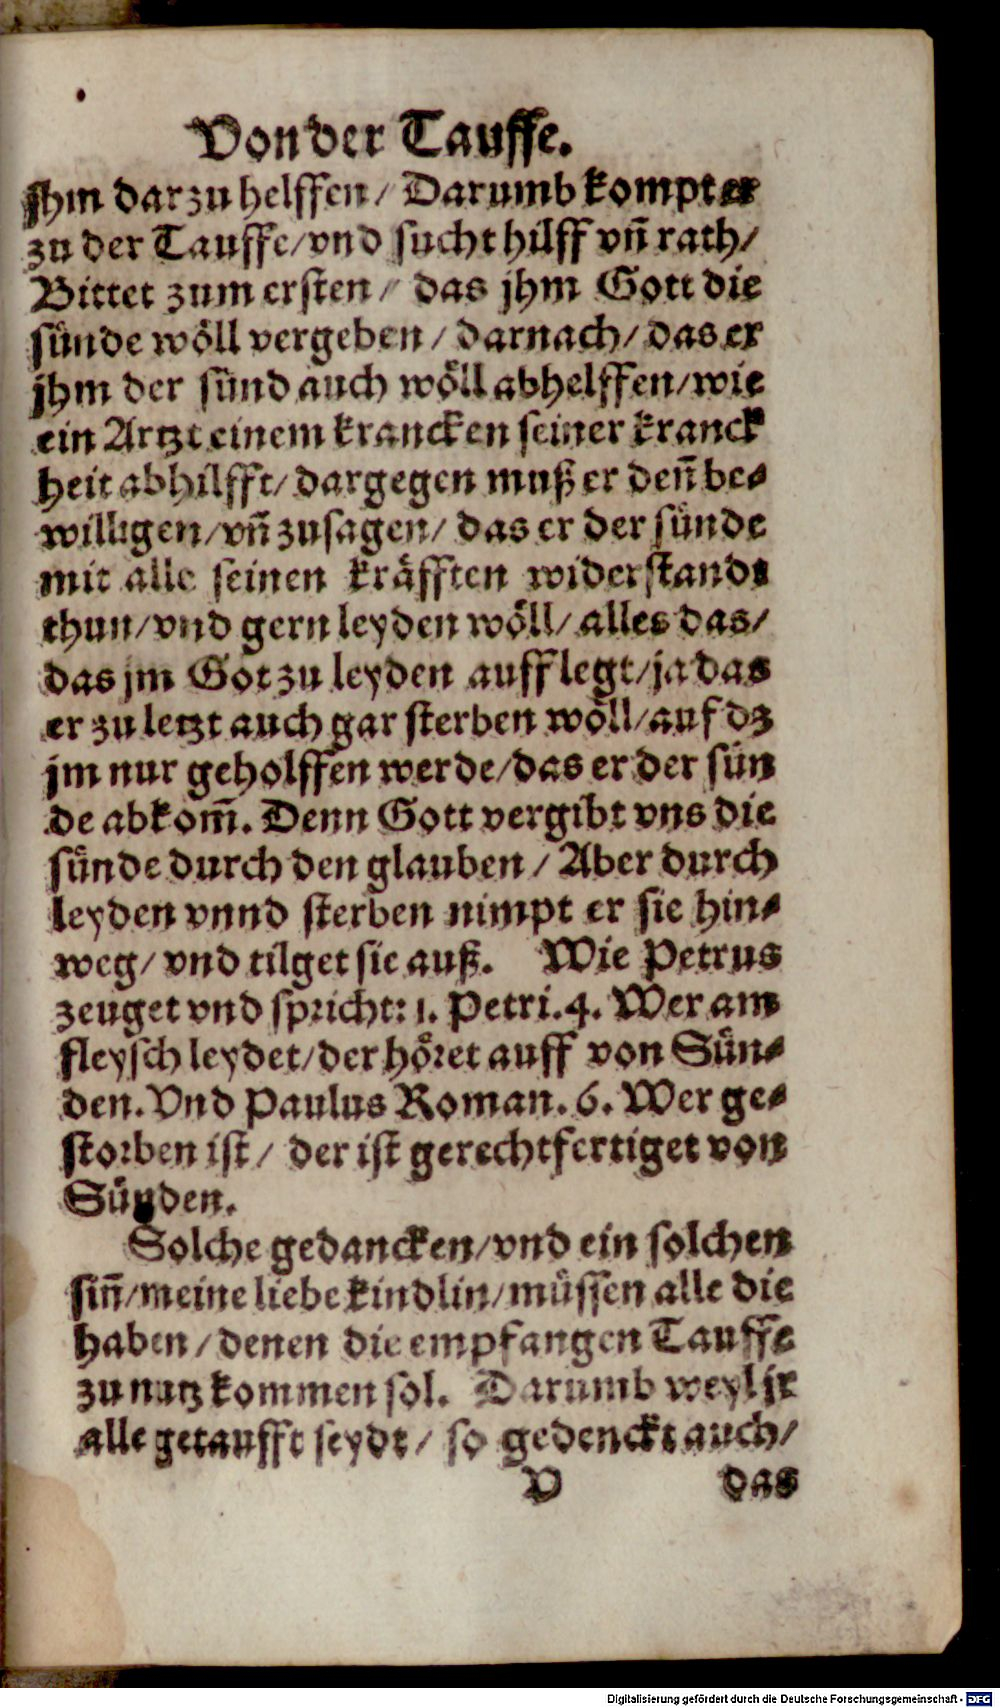 Von der Tauffe.
jhm darzu helffen / Darumb kompt er
zu der Tauffe / vnd sucht hilff vñ rath /
Bittet zum ersten / das jhm Gott die
sünde wöll vergeben / darnach / das er
jhm der sünd auch wöll abhelffen / wie
ein Artzt einem krancken seiner kranck
heit abhilfft / dargegen muß er deñ be-
willigen / vñ zusagen / das er der sünde
mit alle seinen kräfften widerstandt
thun / vnd gern leyden wöll / alles das /
das jm Got zu leyden aufflegt / ja das
er zu letzt auch gar sterben wöll / auf dz
jm nur geholffen werde / das er der sün
de abkom̃. Denn Gott vergibt vns die
sünde durch den glauben / Aber durch
leyden vnnd sterben nimpt er sie hin-
weg / vnd tilget sie auß. Wie Petrus
zeuget vnd spricht: 1. Petri. 4. Wer am
fleysch leydet / der höret auff von Sün-
den. Vnd Paulus Roman. 6. Wer ge-
storben ist / der ist gerechtfertiget von
Sünden.
Solche gedancken / vnd ein solchen
siñ / meine liebe kindlin / müssen alle die
haben / denen die empfangen Tauffe
zu nutz kommen sol. Darumb weyl jr
alle getaufft seydt / so gedenckt auch /
V das
Digitalisierung gefördert durch die Deutsche Forschungsgemeinschaft - DFG